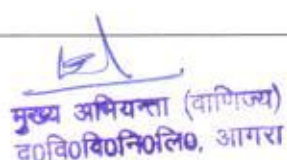 मुख्य अभियन्ता (वाणिज्य)
द०वि०वि०नि०लि०, आगरा